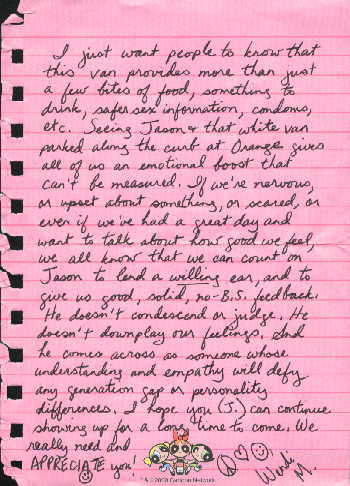 I just want people to know that
this van provides more than just
a few bites of food, something to
drink, safer sex information, condoms,
etc. Seeing Jason & that white van
parked along the curb at Orange gives
all of us an emotional boost that
can't be measured. If we're nervous,
or upset about something, or scared, or
even if we've had a great day and
want to talk about how good we feel,
we all know that we can count on
Jason to lend a willing ear, and to
give us good, solid, no-B.S. feedback.
He doesn't condescend or judge. He
doesn't downplay our feelings. And
he comes across as someone whose
understanding and empathy will defy
any generation gap or personality
differences. I hope you (J.) can continue
showing up for a long time to come. We
really need and
APPRECIATE you!
Wendi
M.
Cartoon Network